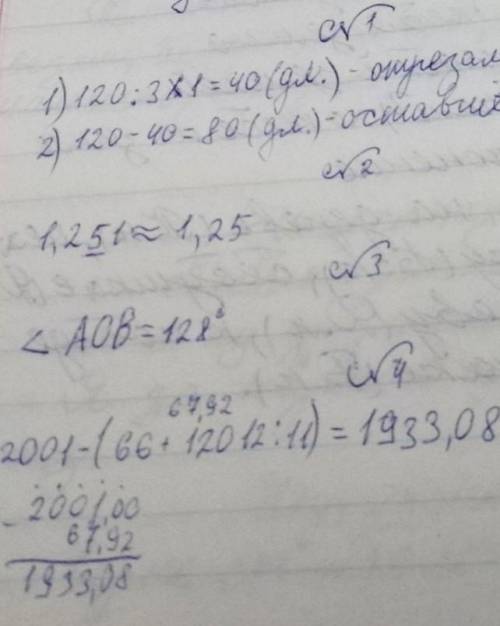 №1
1) 120:3×1=40(дм.)-отрезал
2) 120-40=80(дм.)-оставше
№2
1,251≈1,25
№3
∠ AOB=128°
№4
67,92
2001-(66+12012:11)=1933,08
2001,00
- 67,92
1933,08